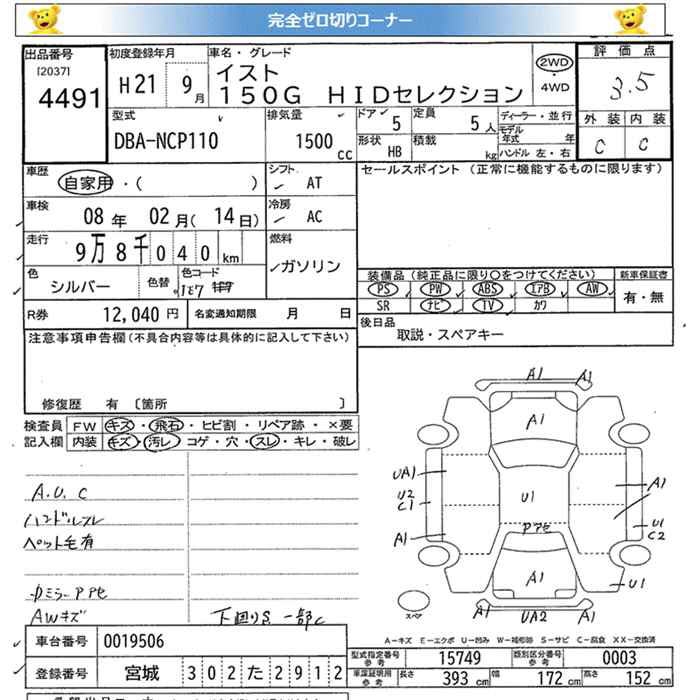 完全ゼロ切りコーナー
出品番号 初度登録年月 車名・グレード 評価点
[2037] 4491 H21 9月 イスト 2WD・4WD 3.5
150G HIDセレクション
外装 内装
C C
型式 排気量 ドア 定員 ディーラー・並行
DBA-NCP110 1500cc 5 5人 モデル年式 年
形状 HB 積載 kg ハンドル 左・右
車歴 シフト セールスポイント (正常に機能するものに限ります)
自家用・( ) AT
車検 冷房
08年 02月(14日) AC
走行 燃料
9万8千040km ガソリン
装備品(純正品に限り○をつけてください) 新車保証書
PS PW ABS エアB AW 有・無
SR ナビ TV カワ
色 色替 色コード
シルバー
R券 12,040円 名変通知期限 月 日
後日品 取説・スペアキー
注意事項申告欄(不具合内容等は具体的に記入して下さい)
修復歴 有 〔箇所 〕
検査員 FW キズ・飛石・ヒビ割・リペア跡・×要
記入欄 内装 キズ・汚レ・コゲ・穴・スレ・キレ・破レ
A.U.C
ハンドルスレ
ペット毛有
AWキズ
下回りS 一部C
A1
A1
A1
A1
UA1
U2
C1
A1
U1
Pアセ
A1
U1
C2
A1
U1
A1
UA2
A1
スペア
A-キズ E-エクボ U-凹み W-補修跡 S-サビ C-腐食 XX-交換済
車台番号 0019506
登録番号 宮城 302た2912
型式指定番号 参考 15749 類別区分番号 参考 0003
車庫証明用 参考 長さ 393cm 幅 172cm 高さ 152cm